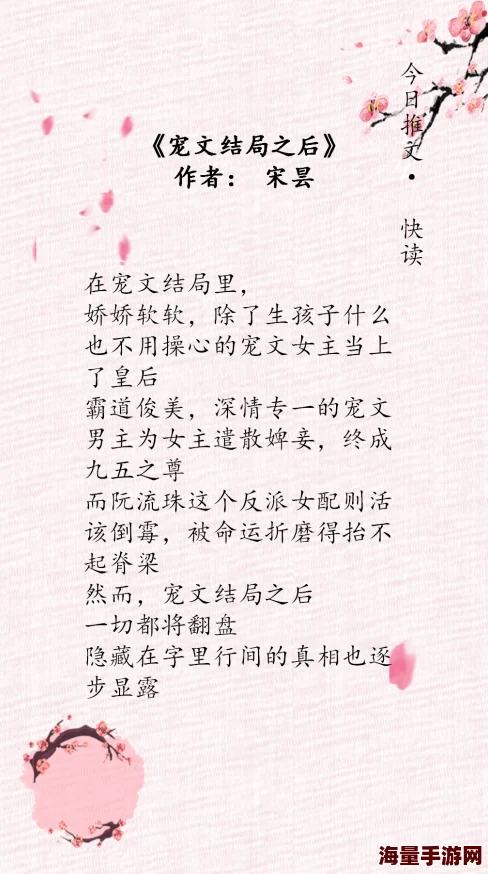 今日推文·快读
《宠文结局之后》
作者： 宋昙
在宠文结局里，
娇娇软软，除了生孩子什么
也不用操心的宠文女主当上
了皇后
霸道俊美，深情专一的宠文
男主为女主遣散婢妾，终成
九五之尊
而阮流珠这个反派女配则活
该倒霉，被命运折磨得抬不
起脊梁
然而，宠文结局之后
一切都将翻盘
隐藏在字里行间的真相也逐
步显露
海量手游网